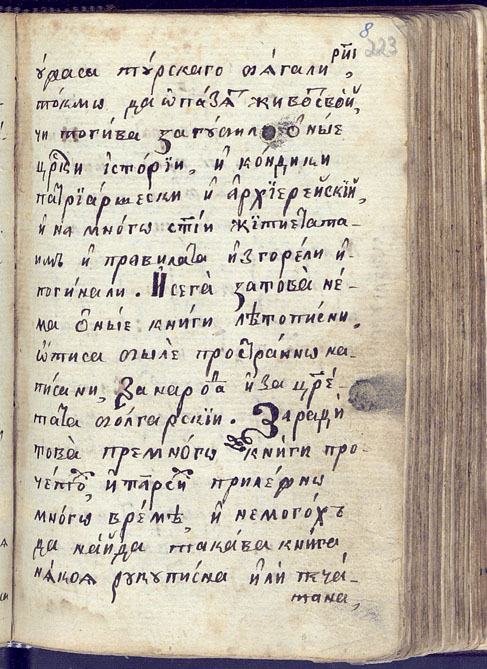 8
223
ужаса турскаго бѧгали
токмо да ѡпазѧт живот свой,
ти тогива загубило ѻные
црски історїи, и кондики
патрїаршески и архїерейскїй,
и на многѡ стїи житиетата
имъ и правилата изгорели и
погинали. И сега затова не-
ма ѻные книги лѣтописни,
ѡтиса биле пространнѡ на-
писани, за народа и за цре-
тата болгарскїи. Заради
това премногѡ книги про-
четѡ, и тарси прилежнѡ
многѡ време, и немогохъ
да найда такава книга
някоѧ рукуписна или печа-
тана,